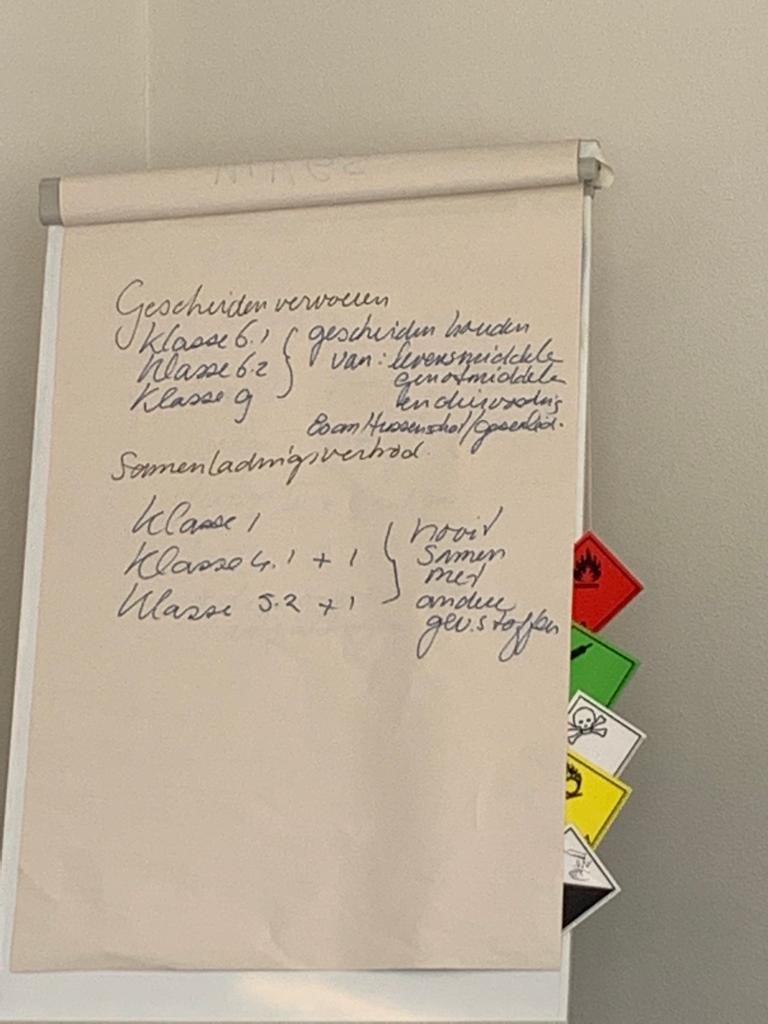 Gescheiden vervoeren
Klasse 6.1 } gescheiden houden
Klasse 6.2 van: levensmiddele
Klasse 9 genotmiddele
en diervoeding
Samenladingsverbod.
Klasse 1 } nooit
Klasse 4.1 + 1 samen
Klasse 5.2 + 1 met
andere
gev.stoffen